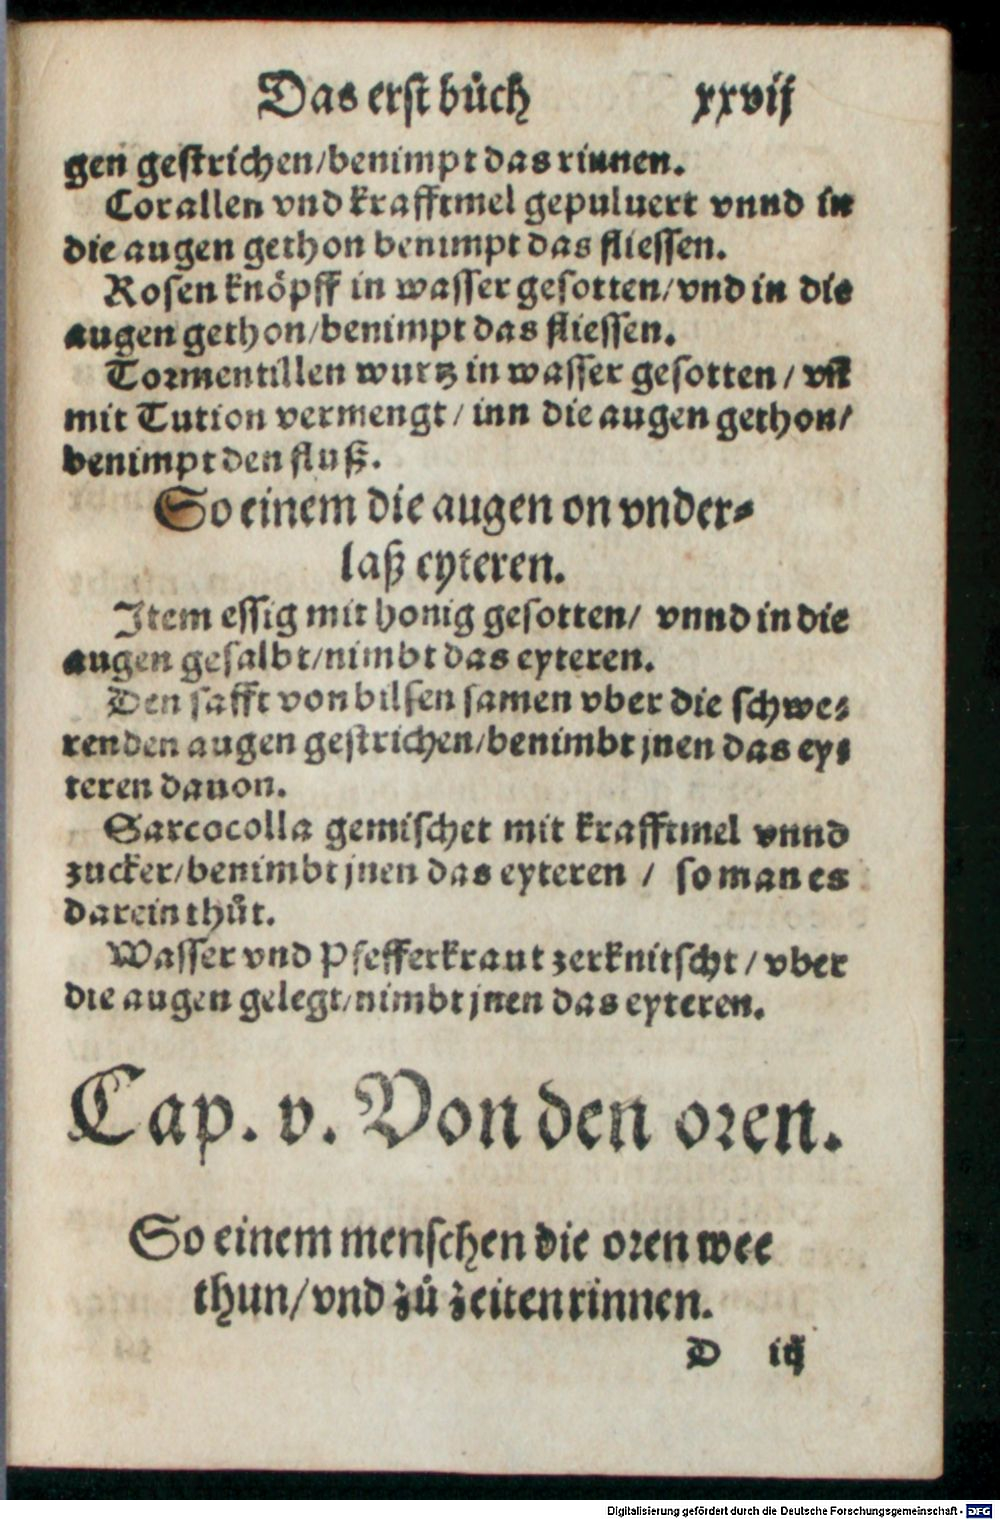 Das erst bůch xxvij
gen gestrichen/benimpt das rinnen.
Corallen vnd krafftmel gepuluert vnnd in
die augen gethon benimpt das fliessen.
Rosen knöpff in wasser gesotten/vnd in die
augen gethon/benimpt das fliessen.
Tormentillen wurtz in wasser gesotten / vñ
mit Tution vermengt / inn die augen gethon/
benimpt den fluß.
So einem die augen on vnder⸗
laß eyteren.
Item essig mit honig gesotten/ vnnd in die
augen gesalbt/nimbt das eyteren.
Den safft von bilsen samen vber die schwe⸗
renden augen gestrichen/benimbt jnen das ey⸗
teren dauon.
Sarcocolla gemischet mit krafftmel vnnd
zucker/benimbt jnen das eyteren / so man es
darein thůt.
Wasser vnd Pfefferkraut zerknitscht / vber
die augen gelegt/nimbt jnen das eyteren.
Cap. v. Von den oren.
So einem menschen die oren wee
thun/vnd zů zeiten rinnen.
D iij
Digitalisierung gefördert durch die Deutsche Forschungsgemeinschaft - DFG